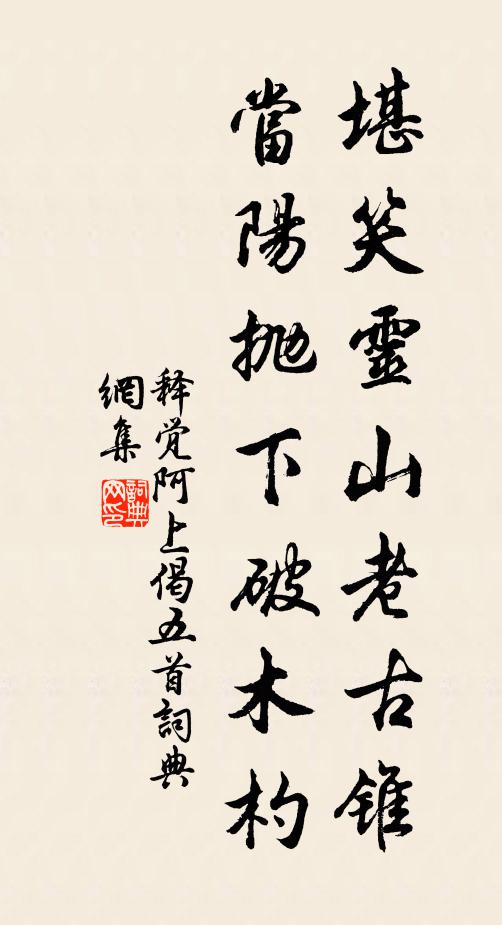 堪笑靈山老古錐
當陽拋下破木杓
释觉阿上偈五首詞典
網集
詞典網印